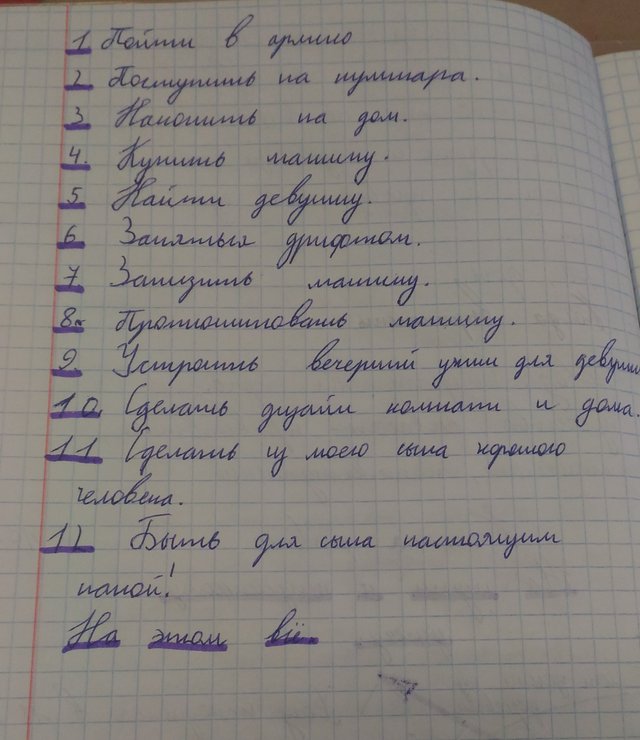 1 Пойти в армию
2 Поступить на пулттара.
3 Накопить на дом.
4. Купить машину.
5 Найти девушку.
6 Заняться дрифтом.
7 Занизить машину.
8. Протюниговать машину.
9. Устроить вечерний ужин для девушки
10 Сделать дизайн комнати и дома.
11 Сделать из моего сына хорошого
человека.
12 Быть для сына настоящим
папой!
На этом всё.